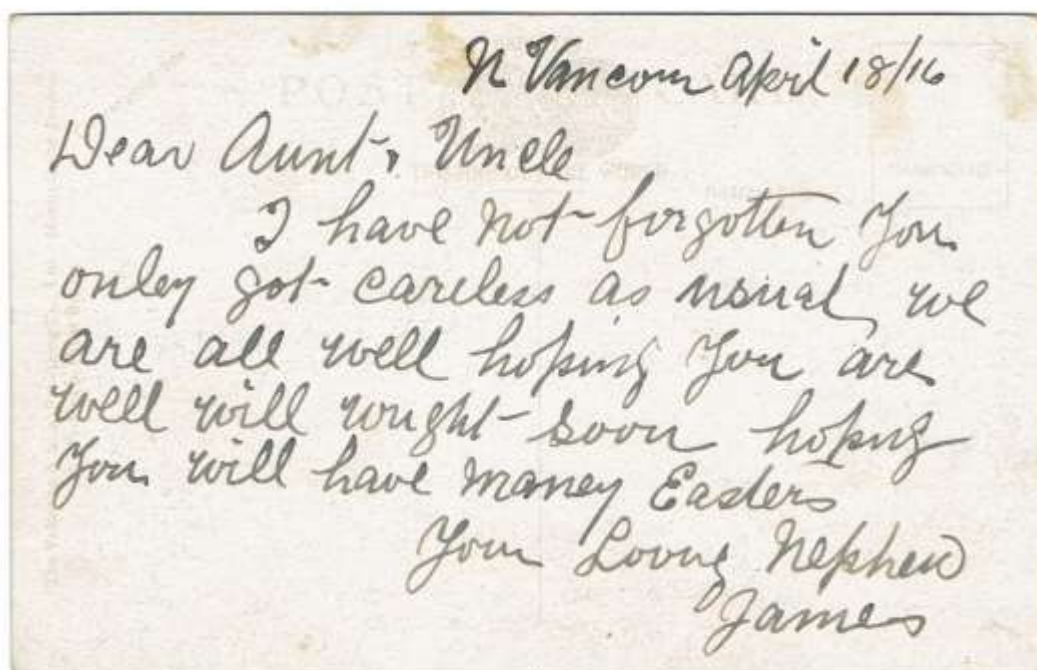 N Vancouv April 18/16
Dear Aunt & Uncle
I have not forgotten You
onley got careless as usual, we
are all well hoping You are
well will wright soon hoping
You will have maney Easters
Your Loving Nephew
James